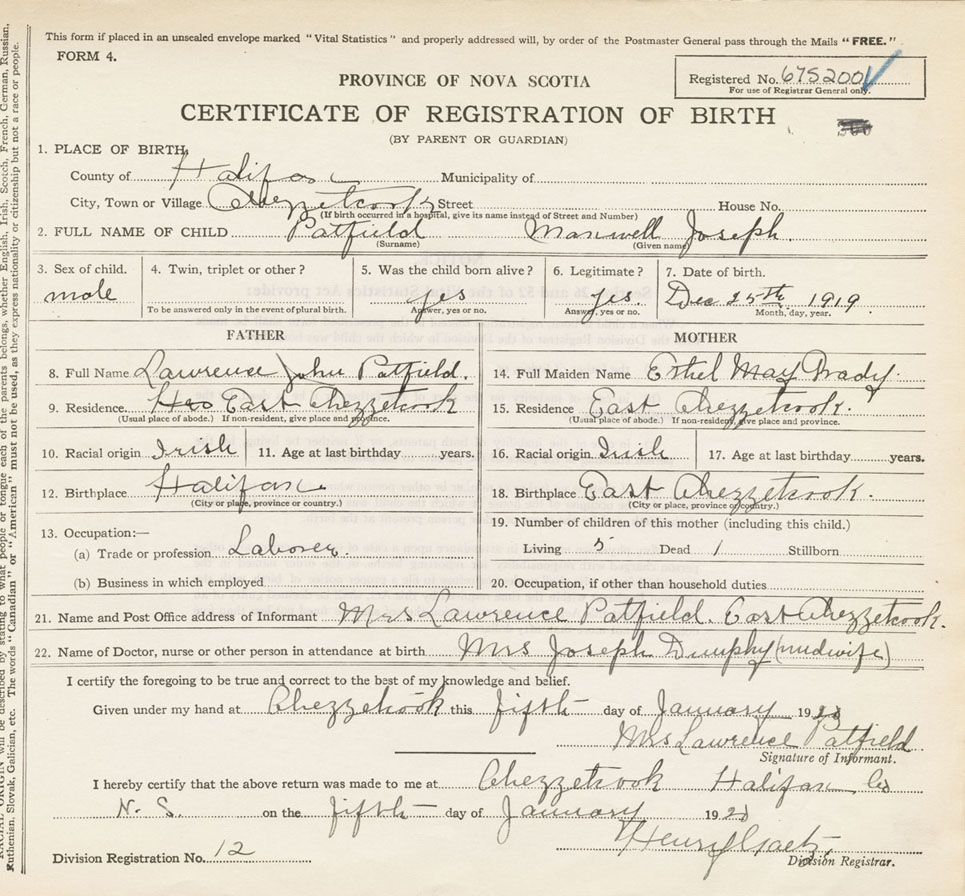 This form if placed in an unsealed envelope marked "Vital Statistics" and properly addressed will, by order of the Postmaster General pass through the Mails "FREE."
FORM 4.
Registered No. 6752001
For use of Registrar General only.
PROVINCE OF NOVA SCOTIA
CERTIFICATE OF REGISTRATION OF BIRTH
(BY PARENT OR GUARDIAN)
1. PLACE OF BIRTH,
County of Halifax Municipality of
City, Town or Village Chezzetcook Street House No.
(If birth occurred in a hospital, give its name instead of Street and Number)
2. FULL NAME OF CHILD Patfield Maxwell Joseph.
(Surname) (Given name)
3. Sex of child. 4. Twin, triplet or other? 5. Was the child born alive? 6. Legitimate? 7. Date of birth.
male yes yes. Dec 25th 1919
To be answered only in the event of plural birth. Answer, yes or no. Answer, yes or no. Month, day, year.
FATHER
8. Full Name Lawrence John Patfield.
9. Residence East Chezzetcook
(Usual place of abode.) If non-resident, give place and province.
10. Racial origin Irish 11. Age at last birthday years.
12. Birthplace Halifax
(City or place, province or country.)
13. Occupation:—
(a) Trade or profession Laborer.
(b) Business in which employed
MOTHER
14. Full Maiden Name Ethel May Brady.
15. Residence East Chezzetcook.
(Usual place of abode.) If non-resident, give place and province.
16. Racial origin Irish 17. Age at last birthday years.
18. Birthplace East Chezzetcook.
(City or place, province or country.)
19. Number of children of this mother (including this child.)
Living 5 Dead 1 Stillborn
20. Occupation, if other than household duties
21. Name and Post Office address of Informant Mrs Lawrence Patfield. East Chezzetcook.
22. Name of Doctor, nurse or other person in attendance at birth Mrs Joseph Dunphy (midwife)
I certify the foregoing to be true and correct to the best of my knowledge and belief.
Given under my hand at Chezzetcook this fifth day of January 19
Mrs Lawrence Patfield
Signature of Informant.
I hereby certify that the above return was made to me at Chezzetcook Halifax Co
N. S. on the fifth day of January 19
Henry Gaetz
Division Registrar.
Division Registration No. 12
Ruthenian, Slovak, Galician, etc. The words "Canadian" or "American" must not be used, as they express nationality or citizenship but not a race or people.